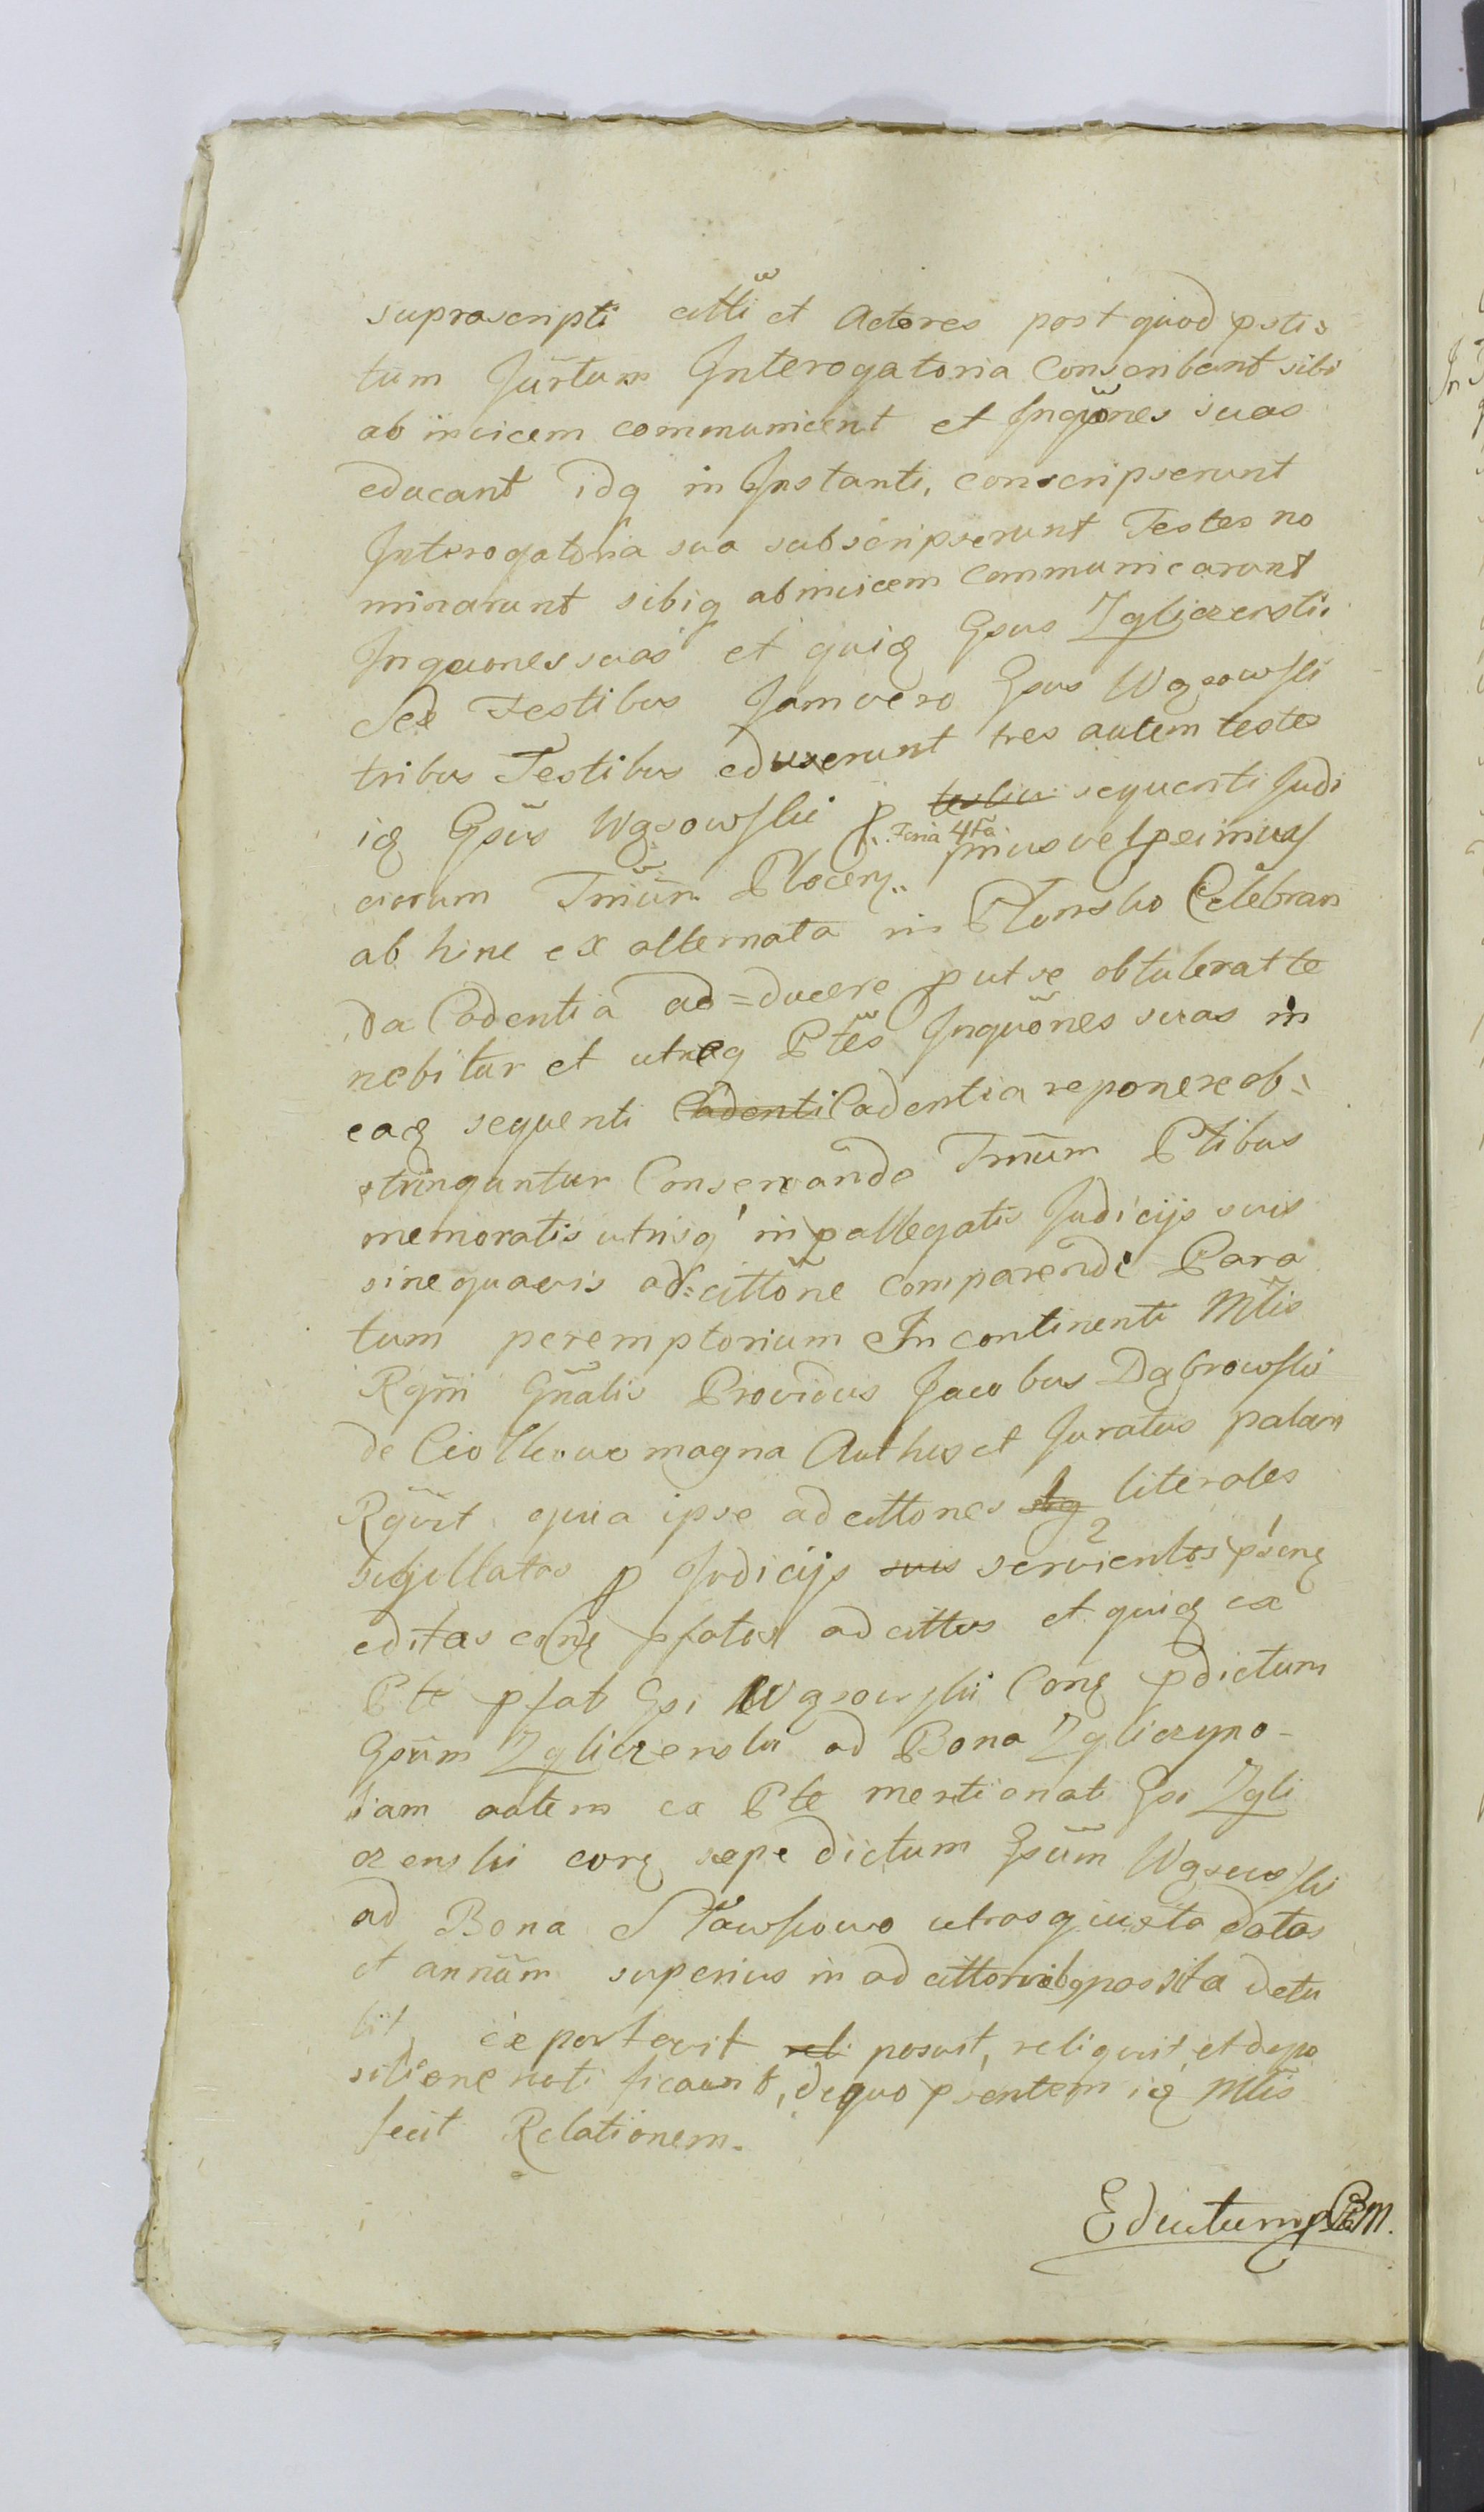 suprascripti citti et Actores post quod pstis
tum Jurtum Interogatoria Conscribant sibi
ab invicem communicent et Inqūones suas
educant idq in Instanti, conscripserunt
Interogatoria sua subscripserunt Testes no
minarunt sibiq abinvicem Communicarunt
Inquones suas et quiq Gsus Zgliczenski
Sex Testibus Jam vero Gsus Wąsowski
tribus Testibus eduxerunt tres autem testes
iq Gsūs Wąsowski p sequenti Judi
Feria 4ta
ciorum Tmūm Plocen. prius vel peimus
ab hinc ex alternata in Płonsko Celebran
da Cadentia ad=ducere put se obtulerat te
nebitur et utraq Ptes Inqūones suas in
eaq sequenti Cadenti Cadentia reponere ob=
stringuntur Conservando Tmūm Ptibus
memoratis utrisq in pallegatis Judicijs suis
sine quavis ad=cittōne comparendi Para
tum peremptorium In continenti Mtis
Rgni Gnalis Providus Jacobus Dąbrowski
de Ciołkowo magna Authus et Juratus palam
Rqvit quia ipse adcittones literales
sigillatas p Judicijs suis servientes psenq
editas conq pfatos ad cittos et quiq ex
Pte pfati Gsi Wąsowski Conq pdictum
Gsūm Zgliczenski ad Bona Zgliczyno-
tam autem ex Pte mentionati Gsi Zgli
czenski conq sepe dictum Gsūm Wąsowski
ad Bona Sławkowo utrasq iuxta datas
et annūm superius in ad cittonibq posita detu
lit, exportavit posuit, reliquit, et depo
sitione notificavit, dequo psentem iq Mtis
fecit Relationem.